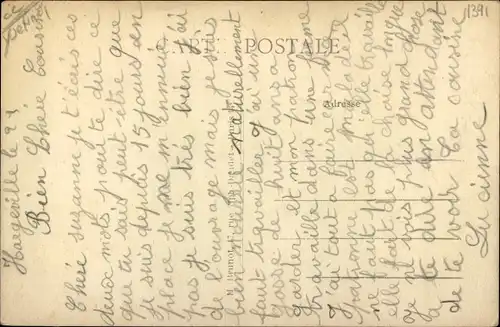 Hageville le 24
Bien Chère Cousine
Chère Suzanne je t'écris ces
deux mots pour te dire ce
que tu sais peut-être que
je suis depuis 15 jours en
place je me m'ennuie
pas je suis très bien j'ai
de l'ouvrage mais je suis
bien naturellement
faut travailler j'ai un
gosse de huit ans a
garder et mon patron
travaille dans une
j'ai tout a faire car ma
patronne est malade
ne faut pas qu'elle travaille
elle fait de la chaise longue
je ne vois plus grand chose
a te dire en attendant
de te voir Ta cousine
Lucienne
CARTE POSTALE
Adresse
1391